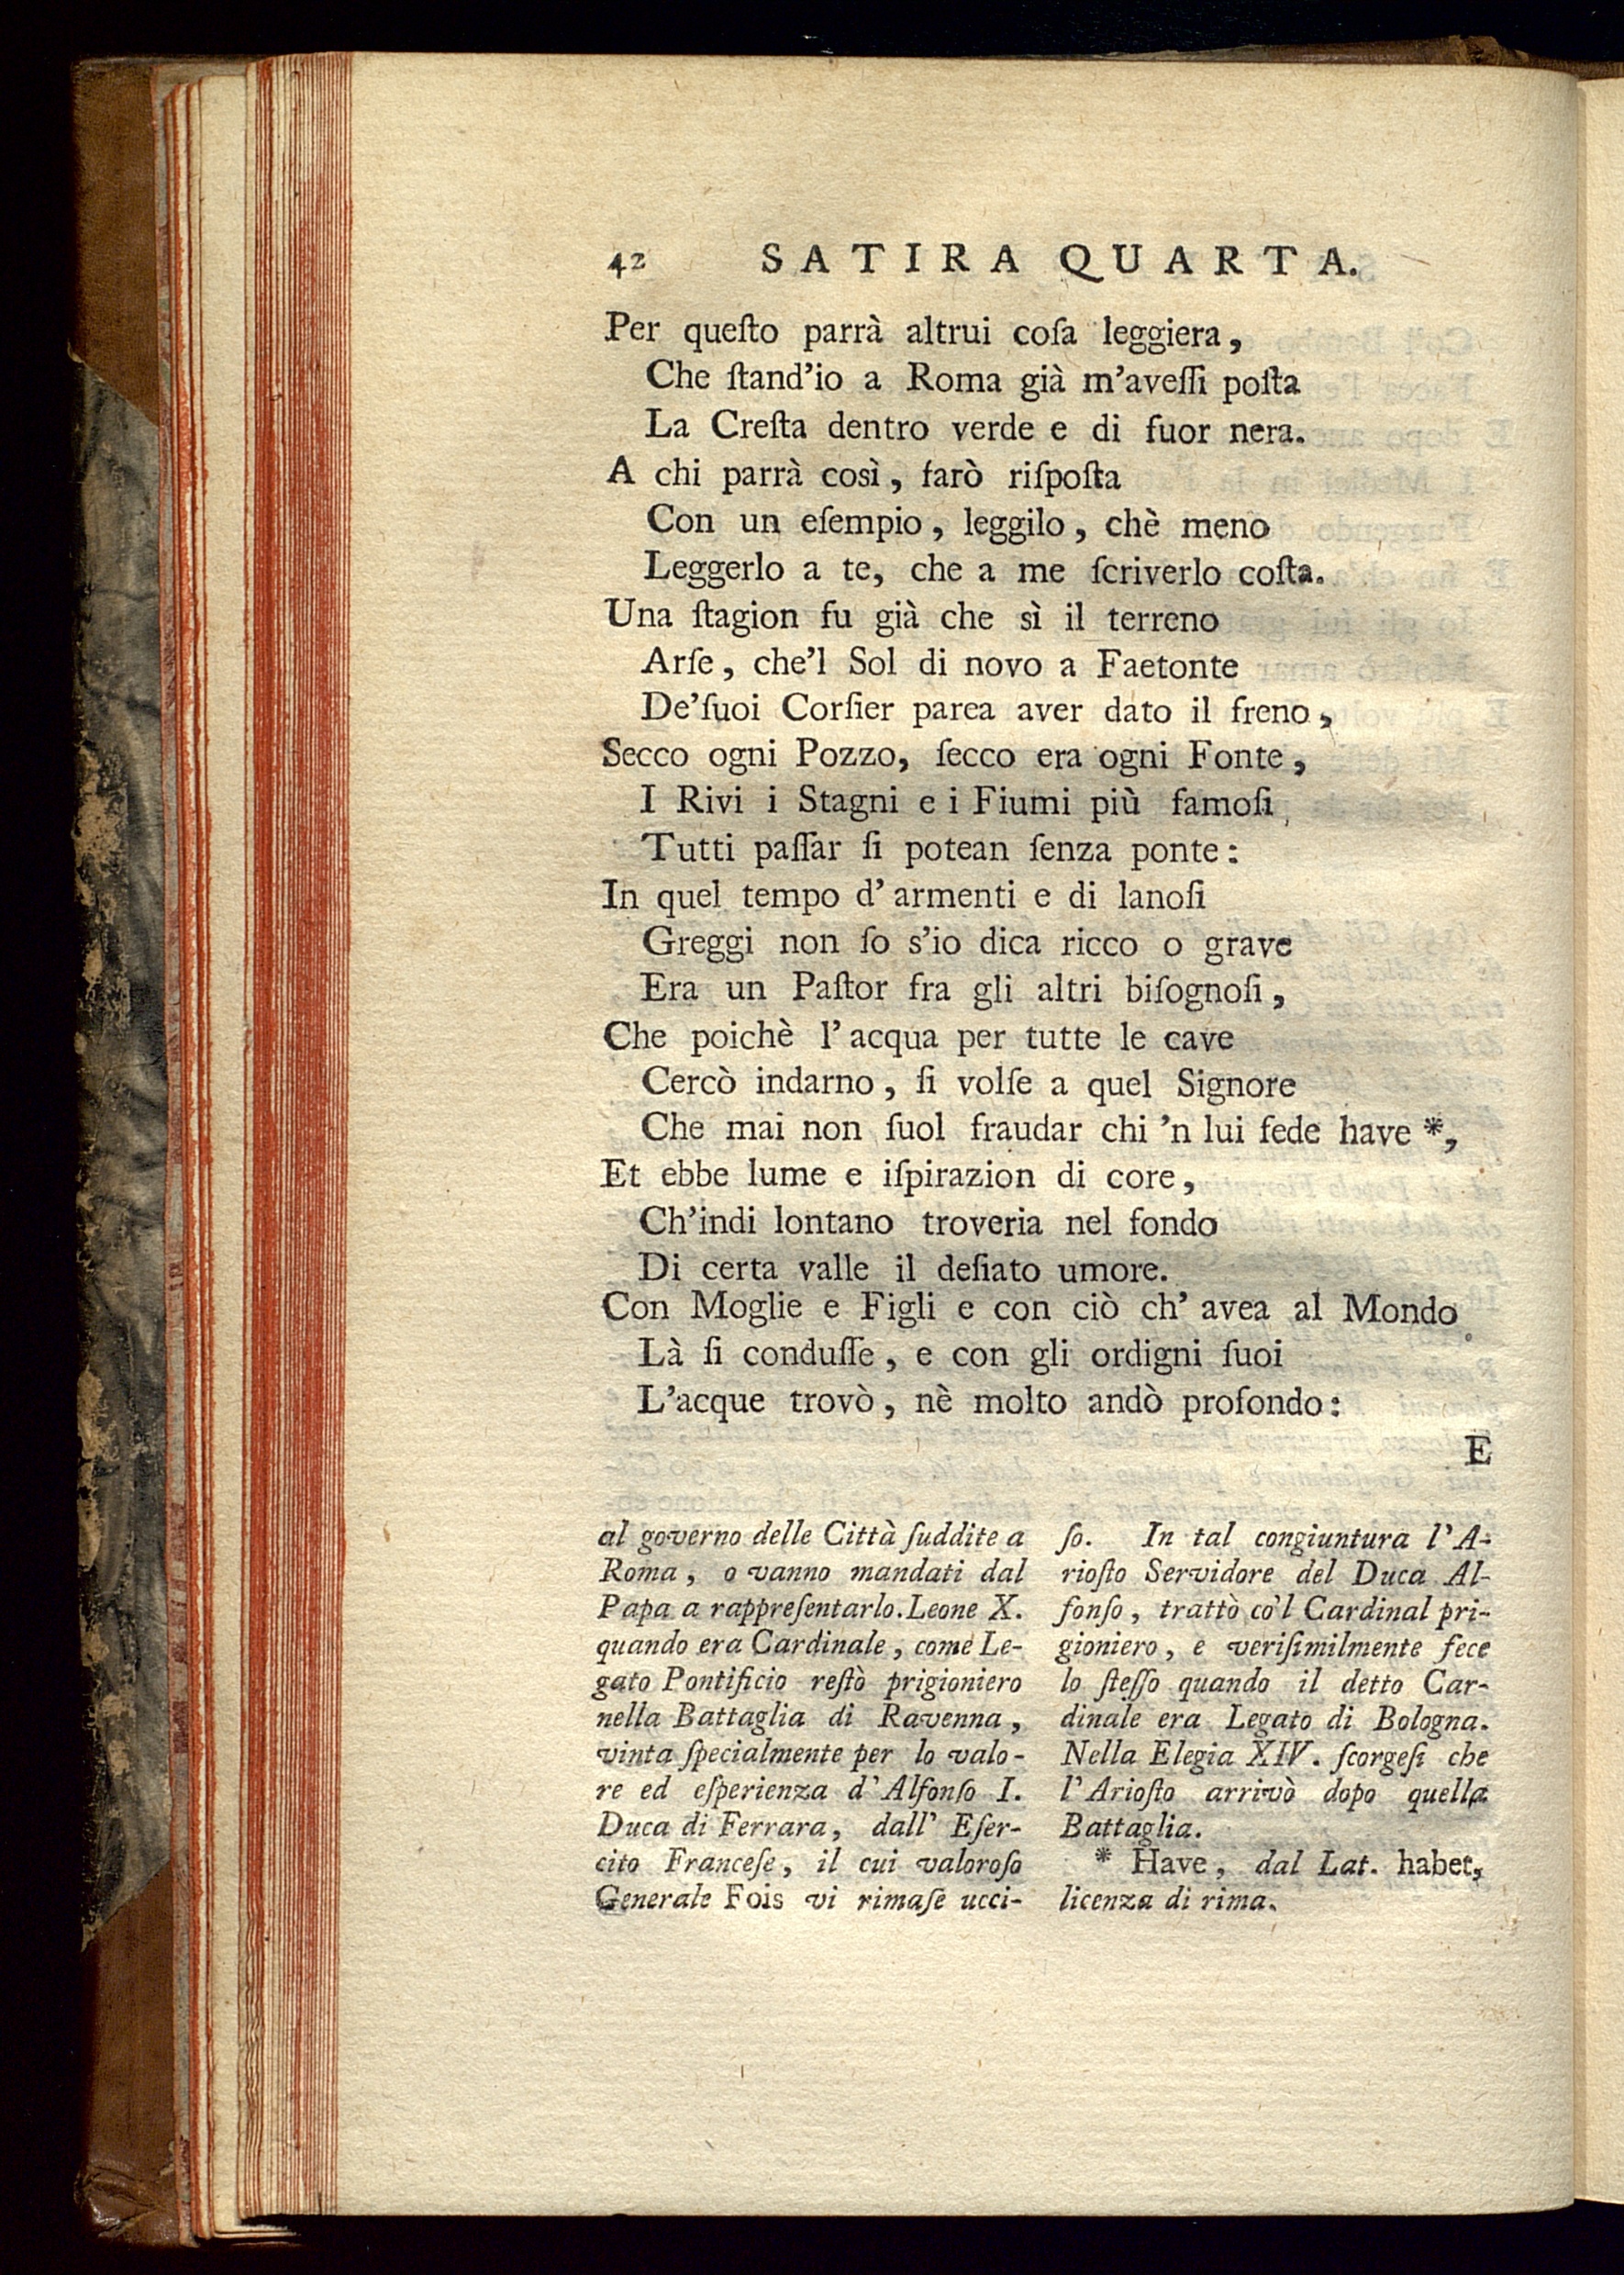 42 SATIRA QUARTA.
Per queſto parrà altrui coſa leggiera,
Che ſtand'io a Roma già m'aveſſi poſta
La Creſta dentro verde e di fuor nera.
A chi parrà così, farò riſpoſta
Con un eſempio, leggilo, chè meno
Leggerlo a te, che a me ſcriverlo coſta.
Una ſtagion fu già che sì il terreno
Arſe, che'l Sol di novo a Faetonte
De'ſuoi Corſier parea aver dato il freno,
Secco ogni Pozzo, ſecco era ogni Fonte,
I Rivi i Stagni e i Fiumi più famoſi
Tutti paſſar ſi potean ſenza ponte:
In quel tempo d'armenti e di lanoſi
Greggi non ſo s'io dica ricco o grave
Era un Paſtor fra gli altri biſognoſi,
Che poichè l'acqua per tutte le cave
Cercò indarno, ſi volſe a quel Signore
Che mai non ſuol fraudar chi 'n lui fede have *,
Et ebbe lume e iſpirazion di core,
Ch'indi lontano troveria nel fondo
Di certa valle il deſiato umore.
Con Moglie e Figli e con ciò ch'avea al Mondo
Là ſi conduſſe, e con gli ordigni ſuoi
L'acque trovò, nè molto andò profondo:
E
al governo delle Città ſuddite a
Roma, o vanno mandati dal
Papa a rappreſentarlo. Leone X.
quando era Cardinale, come Le-
gato Pontificio reſtò prigioniero
nella Battaglia di Ravenna,
vinta ſpecialmente per lo valo-
re ed eſperienza d'Alfonſo I.
Duca di Ferrara, dall' Eſer-
cito Franceſe, il cui valoroſo
Generale Fois vi rimaſe ucci-
ſo. In tal congiuntura l'A-
rioſto Servidore del Duca Al-
fonſo, trattò co'l Cardinal pri-
gioniero, e veriſimilmente fece
lo ſteſſo quando il detto Car-
dinale era Legato di Bologna.
Nella Elegia XIV. ſcorgeſi che
l'Arioſto arrivò dopo quella
Battaglia.
* Have, dal Lat. habet,
licenza di rima.